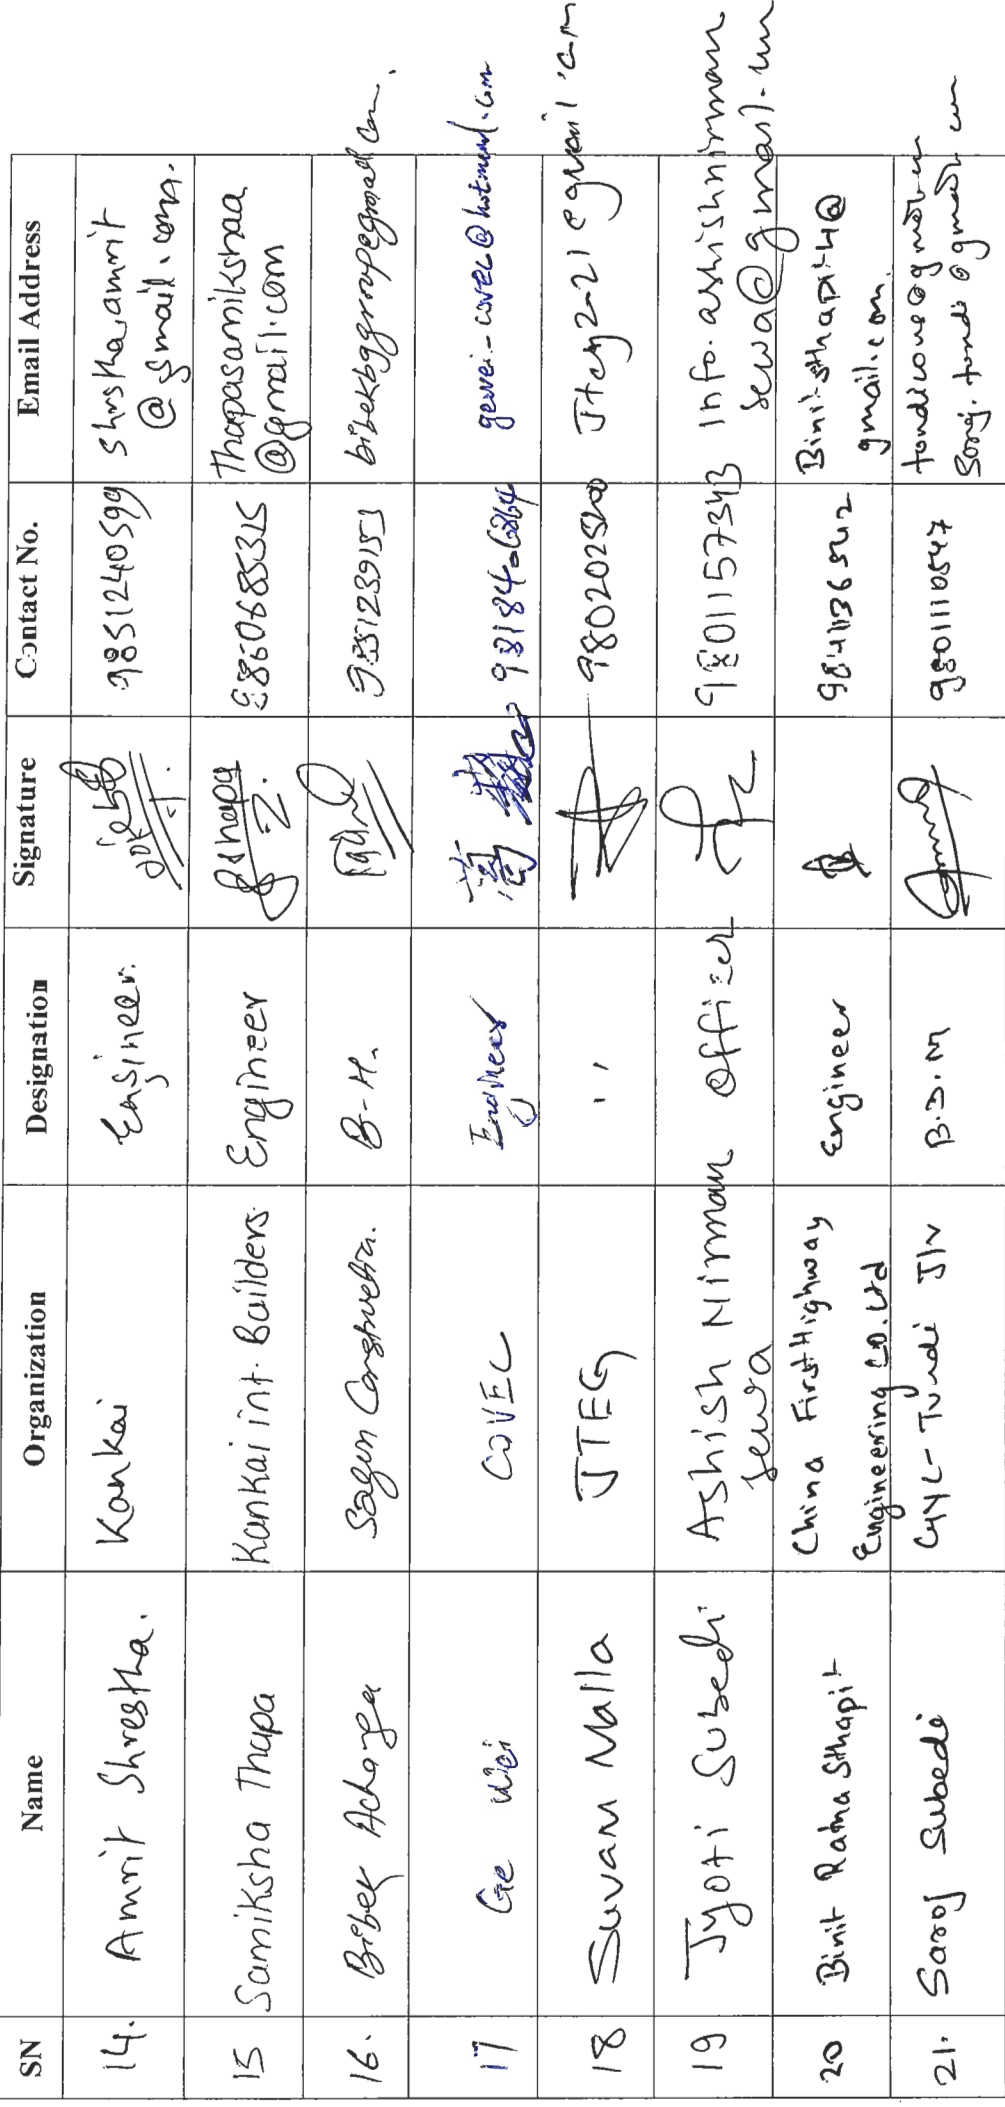 SN Name Organization Designation Signature Contact No. Email Address
14. Amrit Shrestha. Kankai Engineer. 9851240599 shrsthaamrit
@gmail.com.
15 Samiksha Thapa Kankai int. Builders. Engineer 9860685315 thapasamikshaa
@gmail.com
16. Bibek Acharya Sagun Construction. B-H. 9851239151
17 Ge Wei COVEC Engineer 葛 gewei-covec@hotmail.com
18 Suvam Malla JTEG '' 9802025200
19 Jyoti Subedi Ashish Nirman Officer 9801157343 info.ashishnirman
sewa sewa@gmail.com
20 Binit Ratna Sthapit China First Highway Engineer Binit.sthapit4@
Engineering CO. Ltd gmail.com
21. Saroj Subedi CYYC-Tundi J/V B.D.M 9801110547